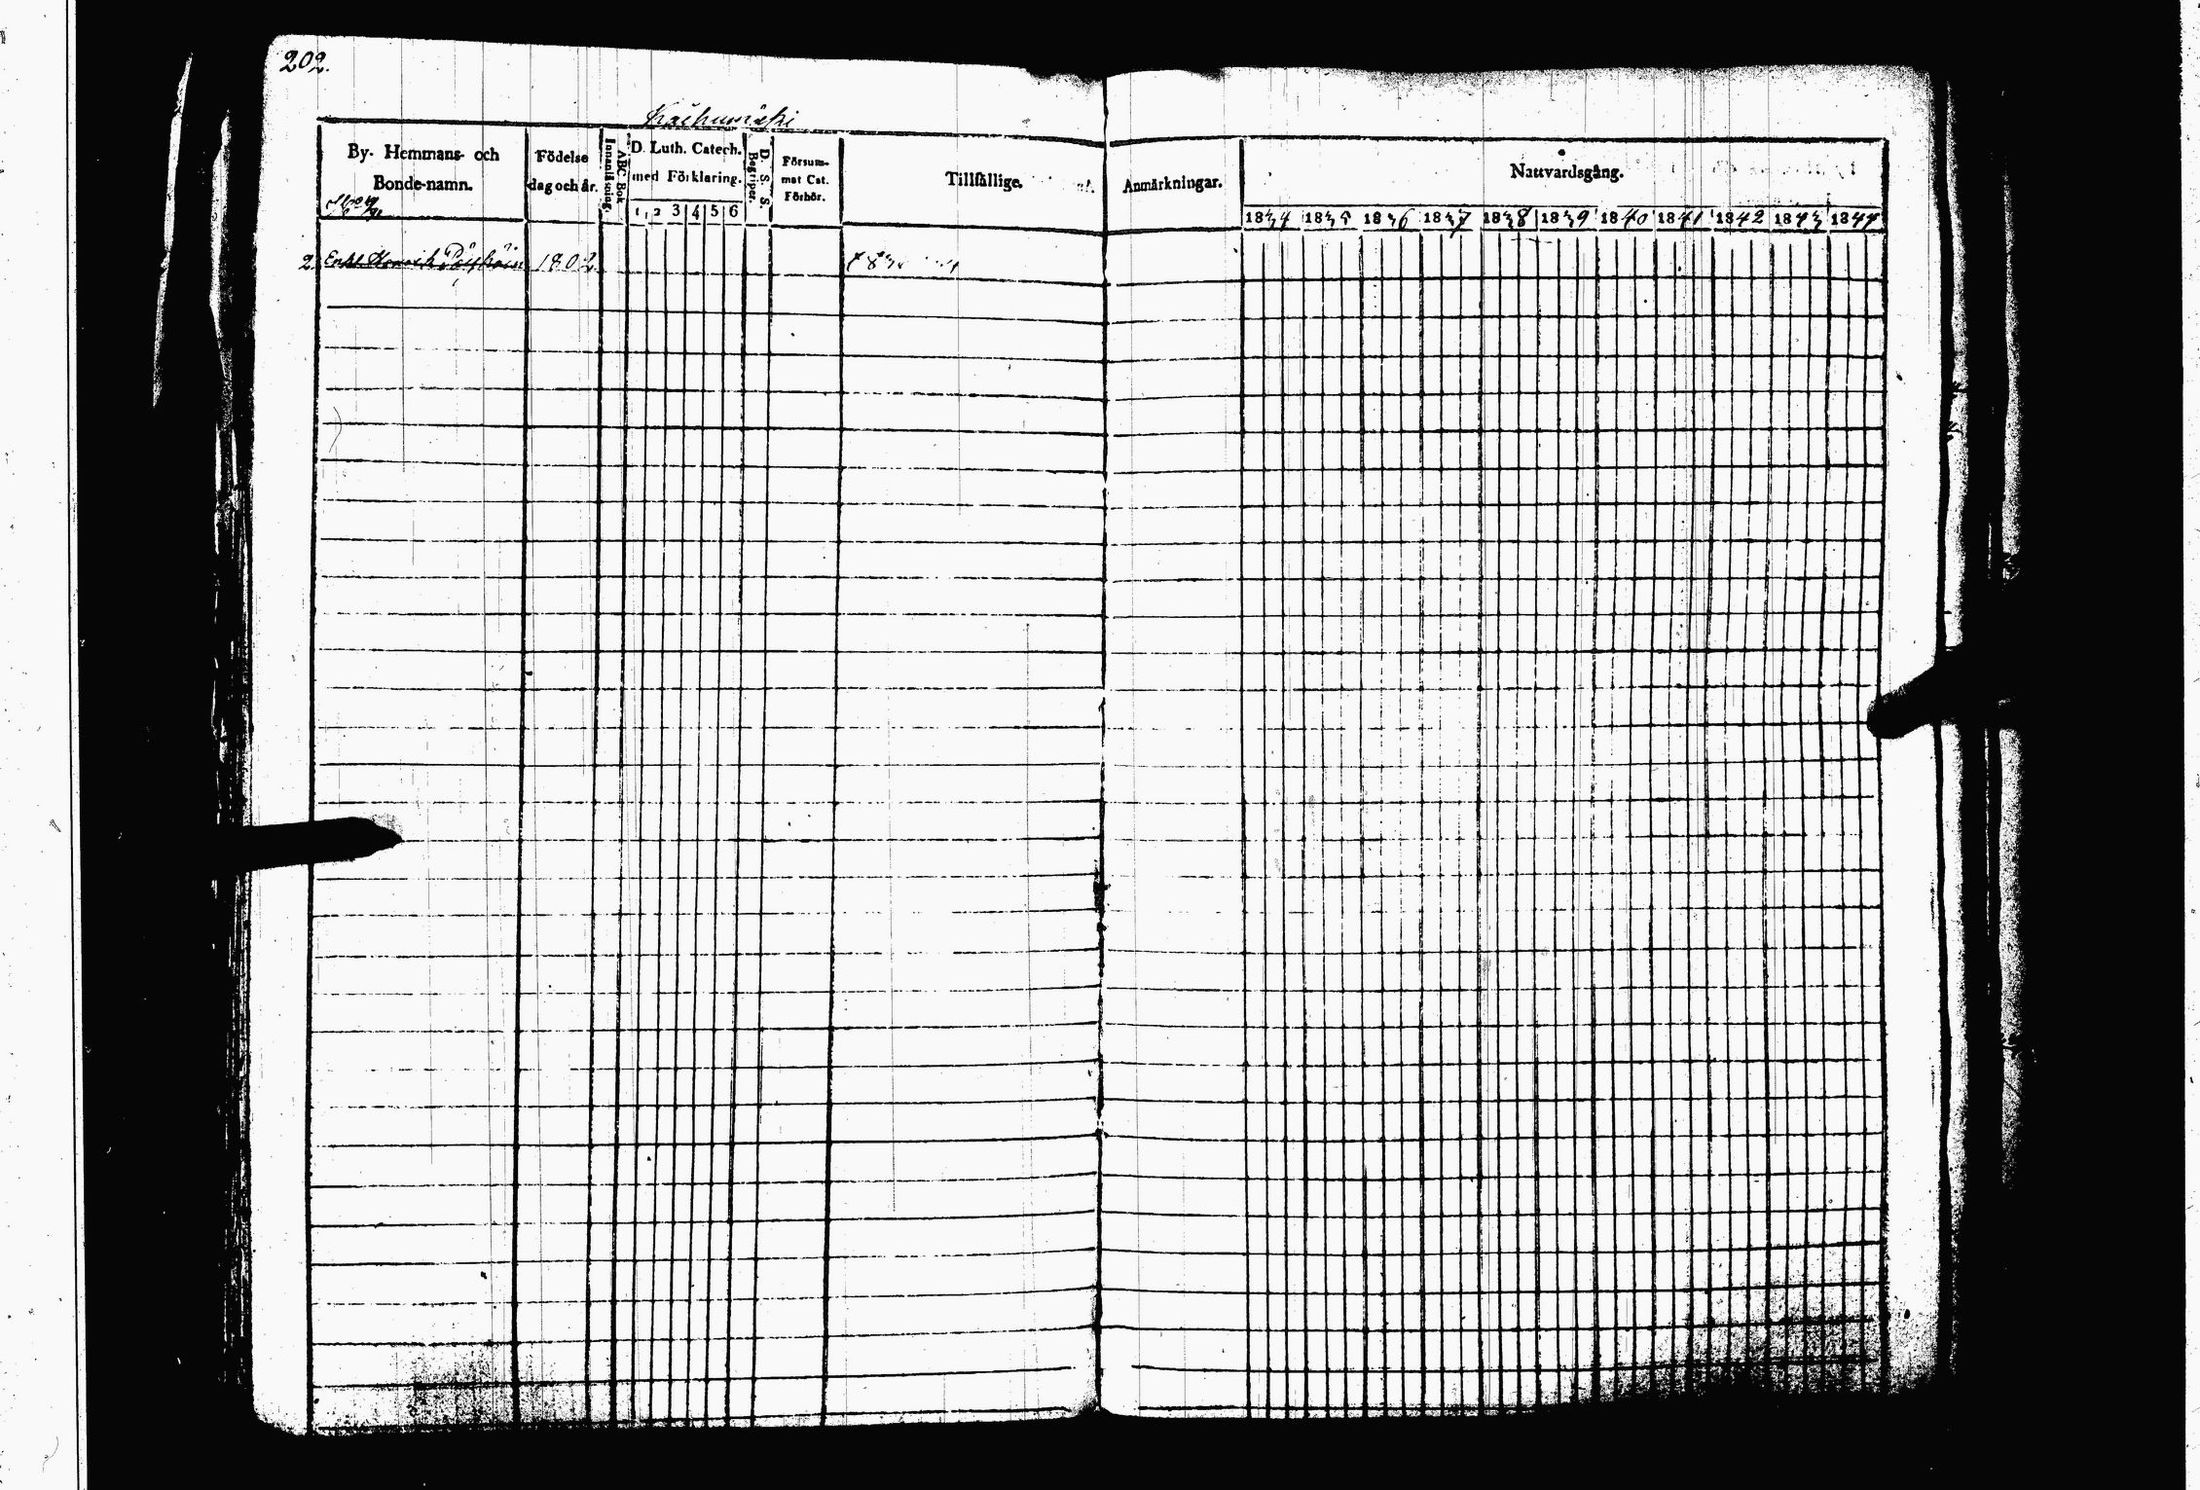 202.
Kaihumäki
By- Hemmans- och
Bonde-namn.
Födelse
dag och år.
ABC Bok
Innanläsning.
D. Luth. Catech.
med Förklaring.
1 2 3 4 5 6
D. S. S.
Begriper.
Försum-
mat Cat.
Förhör.
Tillfällige.
Anmärkningar.
Nattvardsgång.
1834 1835 1836 1837 1838 1839 1840 1841 1842 1843 1844
2. Henrik 1802